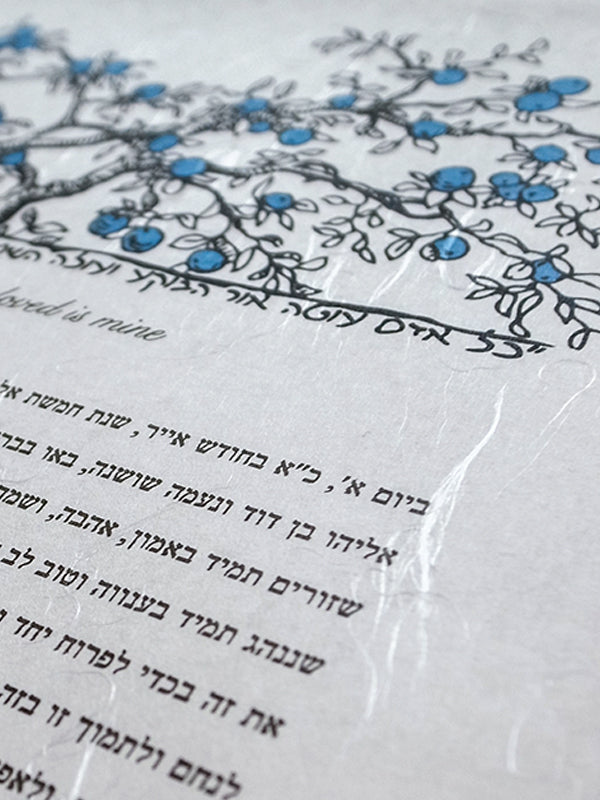 ״כל אדם עוטה אור הבוקע ועולה
loved is mine
ביום א׳, כ״א בחודש אייר, שנת חמשת אל
אליהו בן דוד ונעמה שושנה, באו
שזורים תמיד באמון, אהבה, ושמח
שננהג תמיד בענווה וטוב לב
את זה בכדי לפרוח יחד
לנחם ולתמוך זו בזה